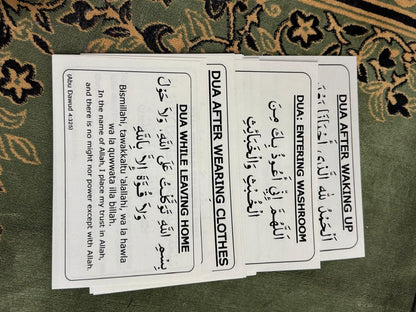 DUA AFTER WAKING UP
اَلْحَمْدُ لِلَّهِ الَّذِي أَحْيَانَا
DUA: ENTERING WASHROOM
اَللَّهُمَّ إِنِّي أَعُوذُ بِكَ مِنَ
الْخُبُثِ وَالْخَبَائِثِ
DUA AFTER WEARING CLOTHES
DUA WHILE LEAVING HOME
بِسْمِ اللَّهِ تَوَكَّلْتُ عَلَى اللَّهِ، وَلَا حَوْلَ
وَلَا قُوَّةَ إِلَّا بِاللَّهِ
Bismillahi, tawakkaltu 'alallahi, wa la hawla
wa la quwwata illa billah.
In the name of Allah, I place my trust in Allah,
and there is no might nor power except with Allah.
(Abu Dawud 4:325)